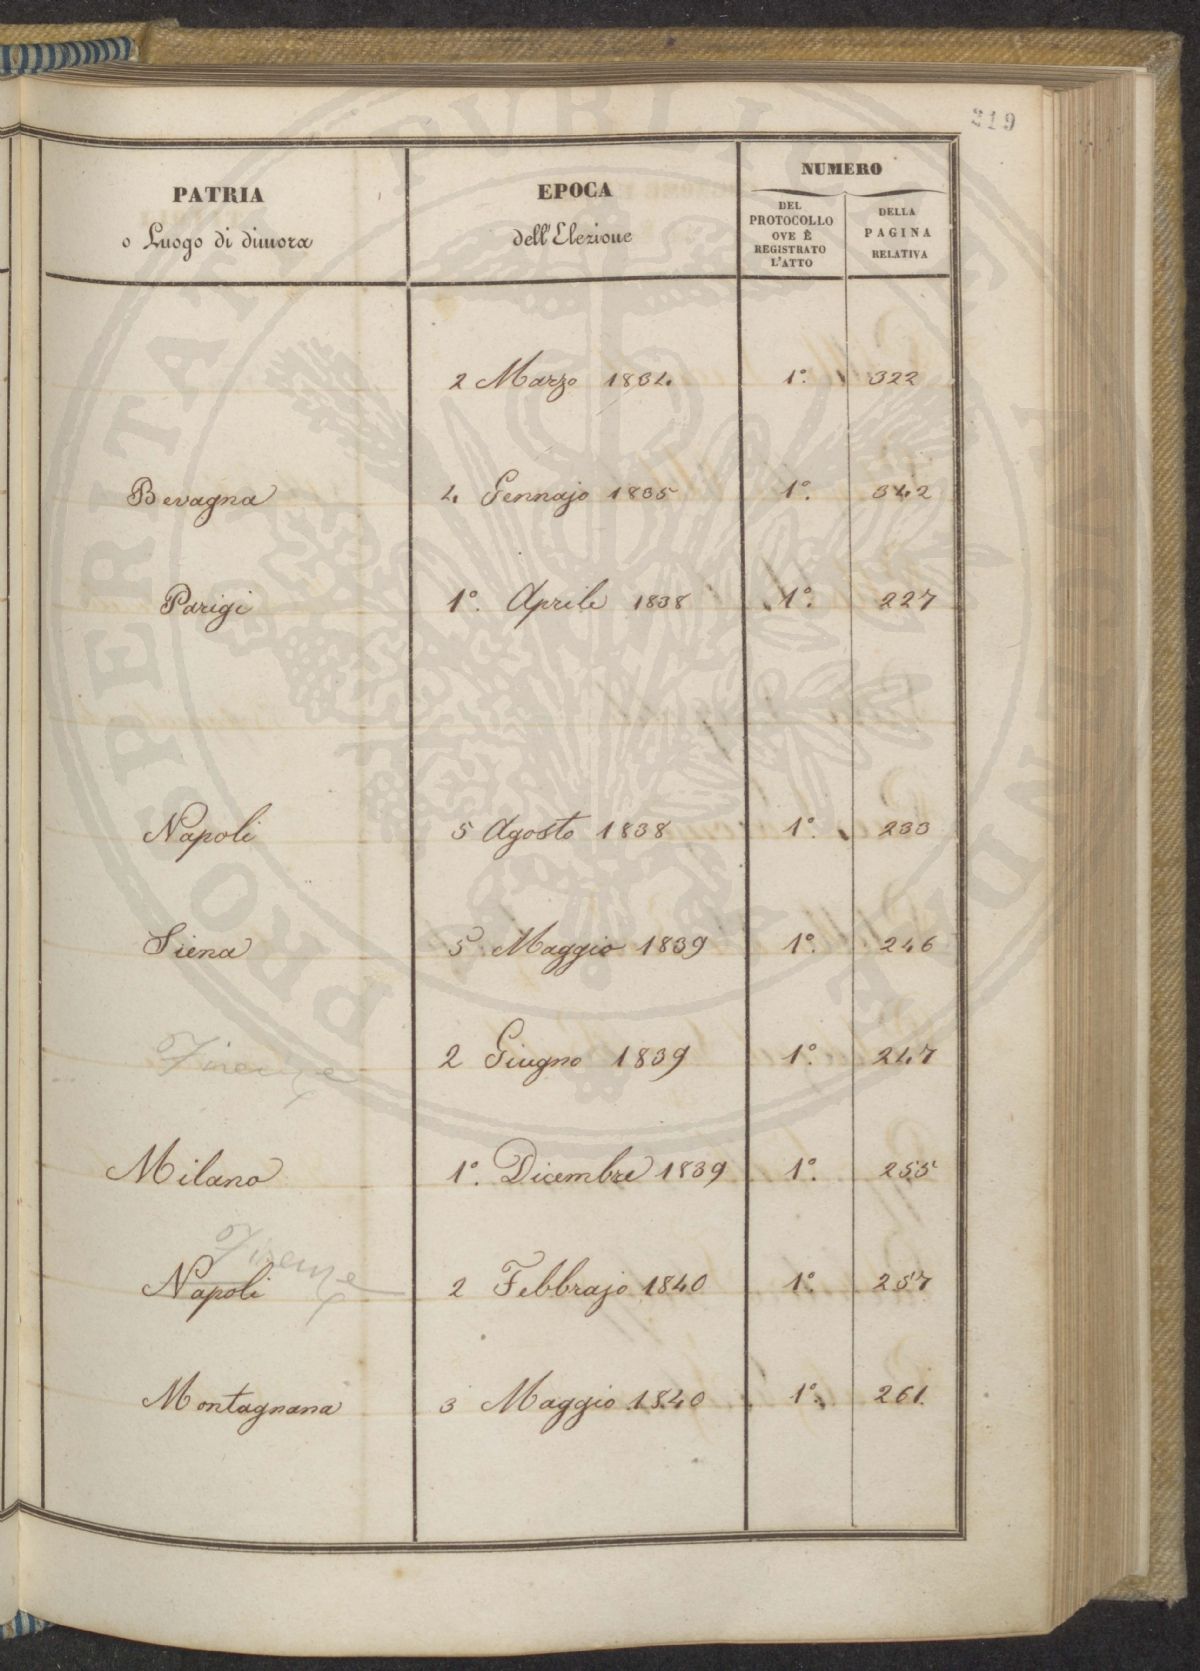 219
PATRIA
o Luogo di dimora
EPOCA
dell'Elezione
NUMERO
DEL
PROTOCOLLO
OVE È
REGISTRATO
L'ATTO
DELLA
PAGINA
RELATIVA
2 Marzo 1834 1º. 322
Bevagna 4 Gennajo 1835 1º. 342
Parigi 1º. Aprile 1838 1º. 227
Napoli 5 Agosto 1838 1º. 233
Siena 5 Maggio 1839 1º. 246
Firenze 2 Giugno 1839 1º. 247
Milano 1º. Dicembre 1839 1º. 255
Firenze
Napoli 2 Febbrajo 1840 1º. 257
Montagnana 3 Maggio 1840 1º. 261